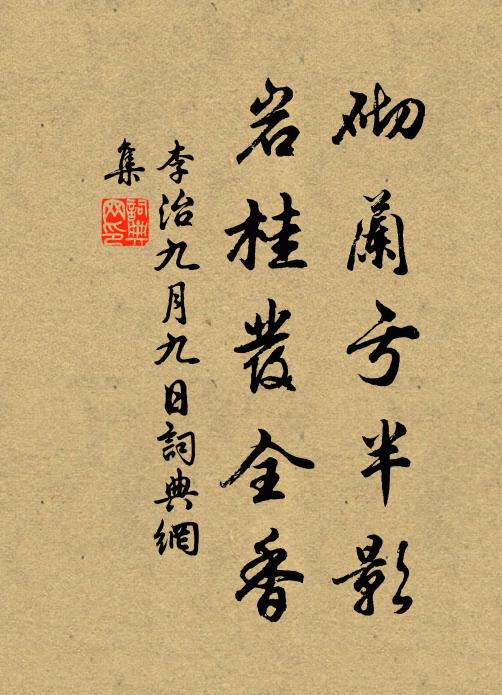 砌蘭亏半影
岩桂發全香
李治九月九日詞典網
集
詞典網印